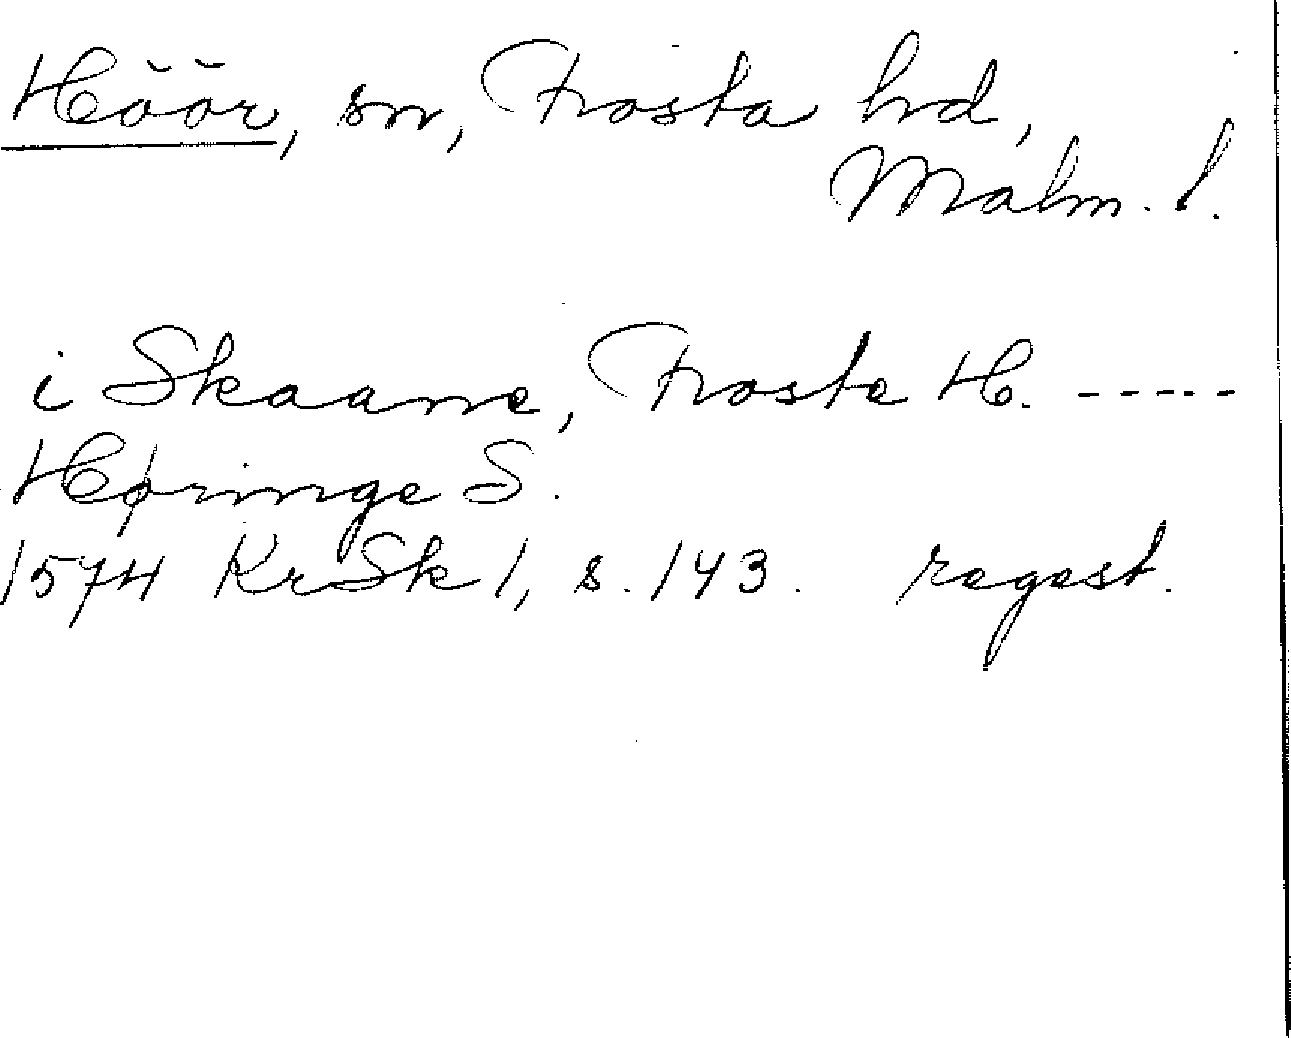 Höör, sn, Frosta hd,
Malm. l.
i Skaane, Froste H. -----
Høringe S.
1574 KrSk 1, s. 143. regest.